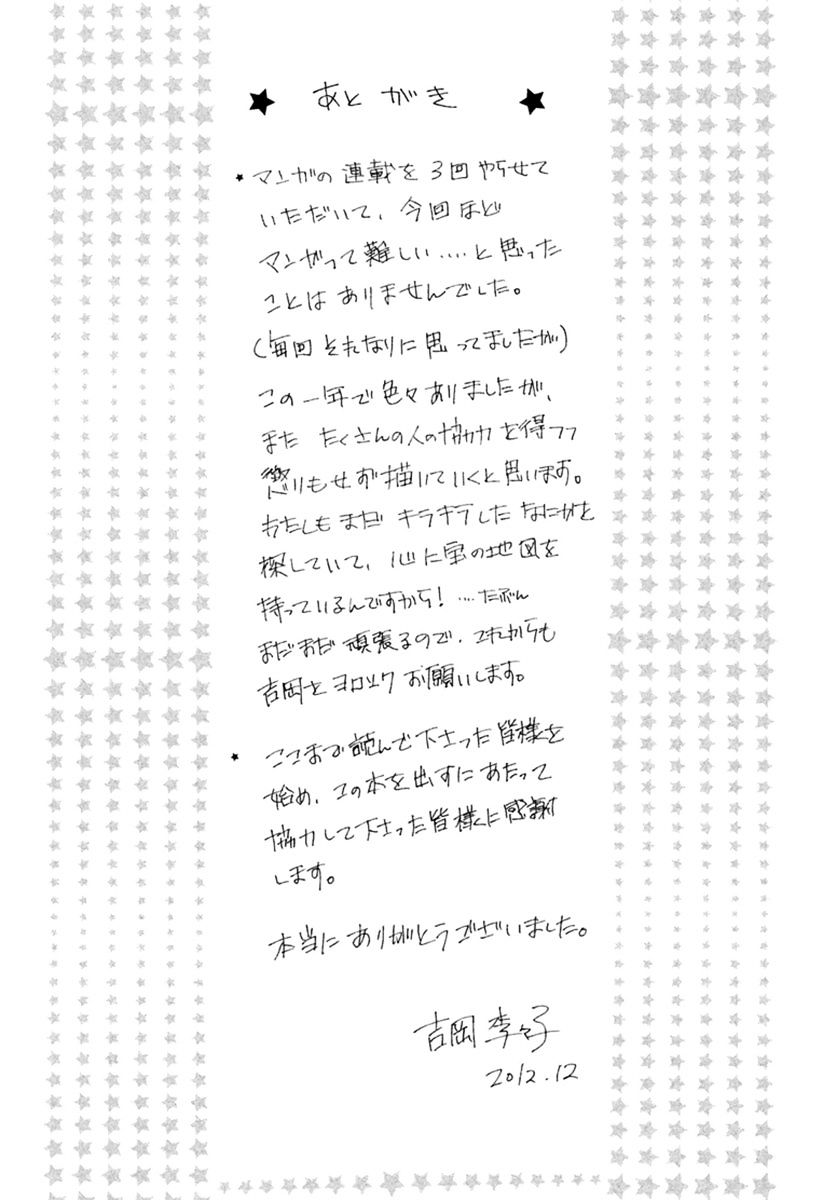 あとがき
マンガの連載を3回やらせて
いただいて、今回ほど
マンガって難しい‥‥と思った
ことはありませんでした。
(毎回それなりに思ってましたが)
この一年で色々ありましたが、
また たくさんの人の協力を得つつ
懲りもせず描いていくと思います。
わたしもまだ キラキラした なにかを
探していて、心に宝の地図を
持っているんですから! …たぶん
まだまだ頑張るので、これからも
吉岡をヨロシク お願いします。
ここまで読んで下さった皆様を
始め、この本を出すにあたって
協力して下さった皆様に感謝
します。
本当にありがとうございました。
吉岡李々子
2012.12